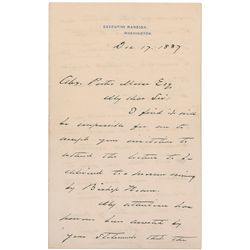 EXECUTIVE MANSION,
WASHINGTON.
Dec. 17, 1887
Alex. Porter Morse Esq.
My dear Sir:
I find it will
be impossible for me to
accept your invitation to
attend the lecture to be
delivered
by
Bishop Keane.
My attention has
been arrested by
your statement that the